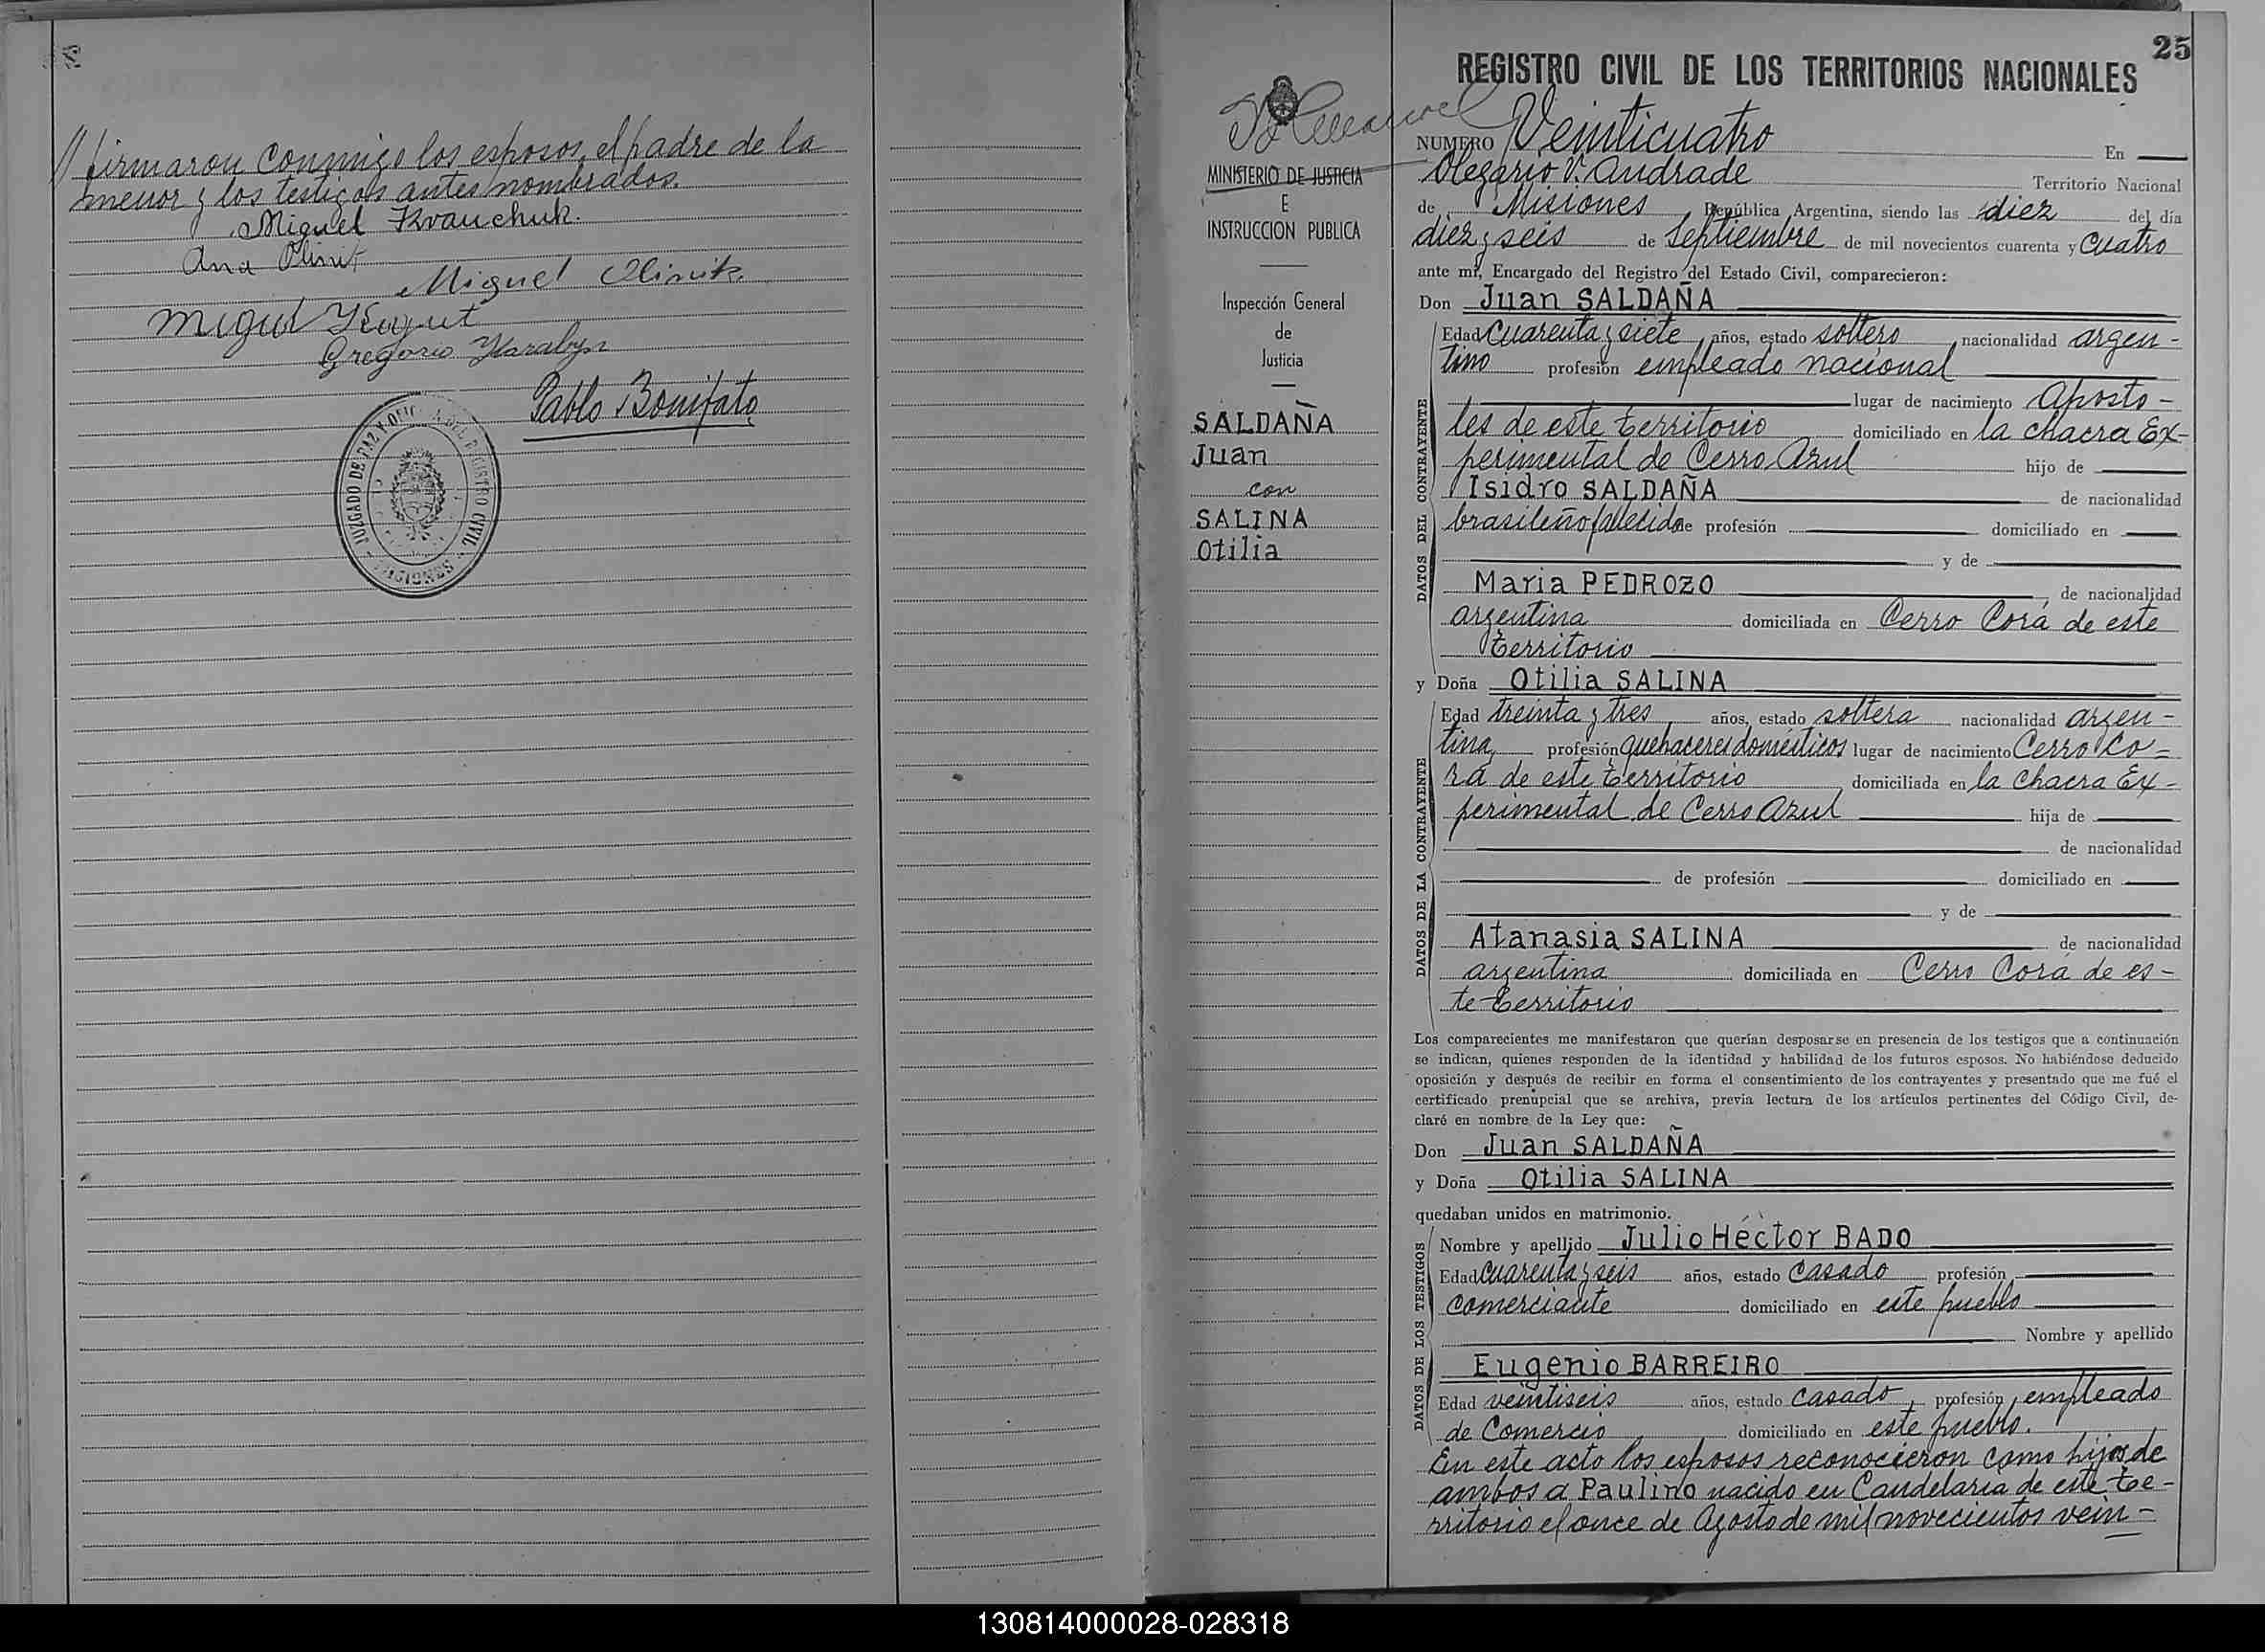 // firmaron conmigo los esposos, el padre de la
menor y los testigos antes nombrados.
Miguel Kvauchuk.
Ana Olinik
Miguel Olinik.
Miguel
Gregorio Harabyn
Pablo Bonifato
JUZGADO DE PAZ Y OFICINA DEL REGISTRO CIVIL
MISIONES
25
REGISTRO CIVIL DE LOS TERRITORIOS NACIONALES
MINISTERIO DE JUSTICIA
E
INSTRUCCION PUBLICA
Inspección General
de
Justicia
SALDAÑA
Juan
con
SALINA
Otilia
NUMERO Veinticuatro En
Olegario V. Andrade Territorio Nacional
de Misiones, República Argentina, siendo las diez del día
diez y seis de Septiembre de mil novecientos cuarenta y cuatro
ante mí, Encargado del Registro del Estado Civil, comparecieron:
Don Juan SALDAÑA
DATOS DEL CONTRAYENTE
Edad cuarenta y siete, años, estado soltero, nacionalidad argen-
tino profesión empleado nacional
lugar de nacimiento Aposto-
les de este territorio domiciliado en la chacra Ex-
perimental de Cerro Azul hijo de
Isidro SALDAÑA de nacionalidad
brasileño fallecido de profesión domiciliado en
y de
Maria PEDROZO de nacionalidad
argentina domiciliada en Cerro Corá de este
territorio
y Doña Otilia SALINA
DATOS DE LA CONTRAYENTE
Edad treinta y tres, años, estado soltera nacionalidad argen-
tina, profesión quehaceres domésticos lugar de nacimiento Cerro Co-
rá de este territorio domiciliada en la chacra Ex-
perimental de Cerro Azul hija de
de nacionalidad
de profesión domiciliado en
y de
Atanasia SALINA de nacionalidad
argentina domiciliada en Cerro Corá de es-
te territorio
Los comparecientes me manifestaron que querían desposarse en presencia de los testigos que a continuación
se indican, quienes responden de la identidad y habilidad de los futuros esposos. No habiéndose deducido
oposición y después de recibir en forma el consentimiento de los contrayentes y presentado que me fué el
certificado prenupcial que se archiva, previa lectura de los artículos pertinentes del Código Civil, de-
claré en nombre de la Ley que:
Don Juan SALDAÑA
y Doña Otilia SALINA
quedaban unidos en matrimonio.
DATOS DE LOS TESTIGOS
Nombre y apellido Julio Héctor BADO
Edad cuarenta y seis años, estado casado profesión
comerciante domiciliado en este pueblo
Nombre y apellido
Eugenio BARREIRO
Edad veintiseis años, estado casado, profesión empleado
de Comercio domiciliado en este pueblo.
En este acto los esposos reconocieron como hijos de
ambos a Paulino nacido en Candelaria de este te-
rritorio el once de Agosto de mil novecientos vein-
130814000028-028318